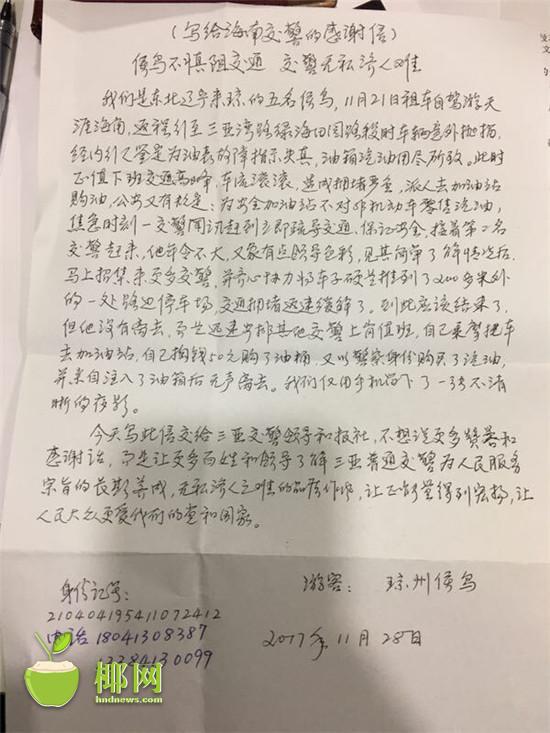 （写给海南交警的感谢信）
候鸟不慎阻交通 交警无私济人难
我们是东北辽宁来琼的五名候鸟，11月21日租车自驾游天
涯海角，返程行至三亚湾路绿海田园路段时车辆意外抛锚，
经内行人鉴定为油表故障指示失真，油箱汽油用尽所致。此时
正值下班交通高峰，车流滚滚，造成拥堵严重，派人去加油站
购油，公安又有规定：为安全加油站不对非机动车零售汽油，
焦急时刻一交警闻讯赶到立即疏导交通，保证安全，接着第二名
交警赶来，他年令不大，又象有点领导色彩，见其简单了解情况后
马上招集来更多交警，并齐心协力将车子硬是推到了200多米外
的一处路边停车场，交通拥堵迅速缓解了。到此应该结束了，
但他没有离去，而是迅速安排其他交警上岗值班，自己乘摩托车
去加油站，自己掏钱50元购了油桶，又以警察身份购买了汽油，
并亲自注入了油箱后无声离去。我们仅用手机留下了一张不清
晰的夜影。
今天写此信交给三亚交警领导和报社，不想说更多赞善和
感谢话，而是让更多百姓和领导了解三亚普通交警为人民服务
宗旨的长期养成，无私济人之难的品德作风，让正能量得到宏扬，让
人民大众更爱我们的党和国家。
身份证号：
210404195411072412
电话 18041308387
130099
游客： 琼州候鸟
2017年11月28日
椰网
hndnews.com